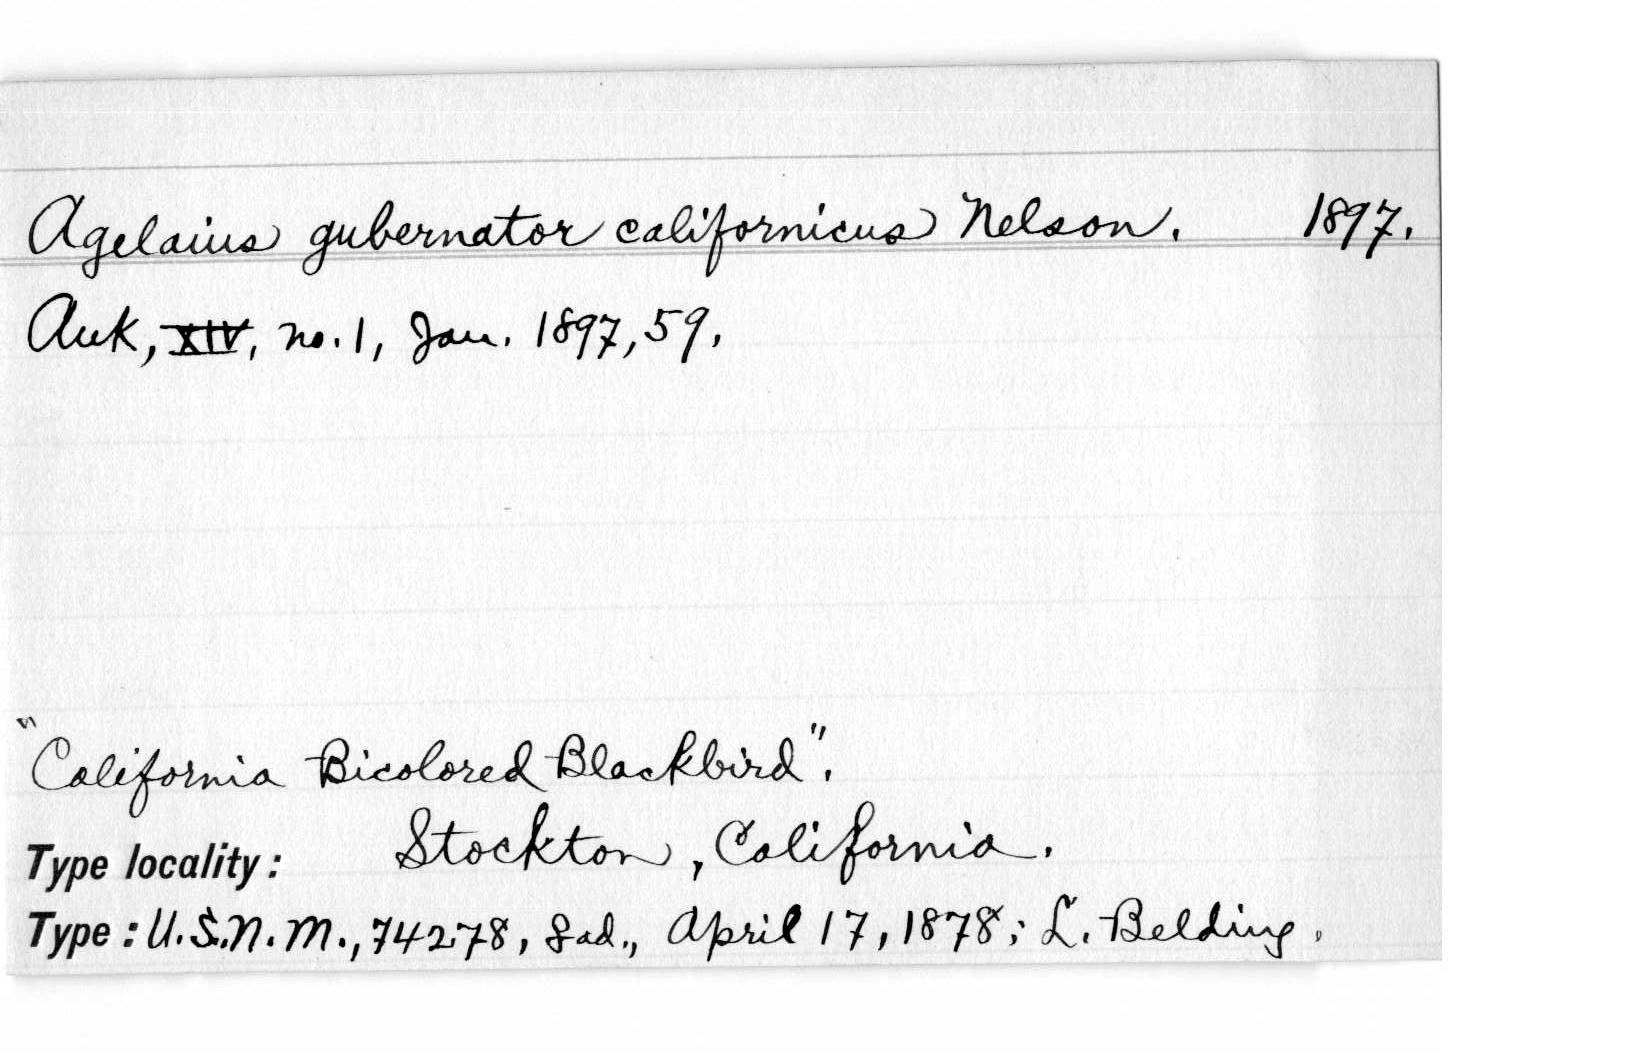 Agelaius gubernator californicus Nelson. 1897.
Auk, XIV, no. 1, Jan. 1897, 59.
"California Bicolored Blackbird".
Type locality: Stockton, California.
Type: U.S.N.M., 74278, ad., April 17, 1878; L. Belding.